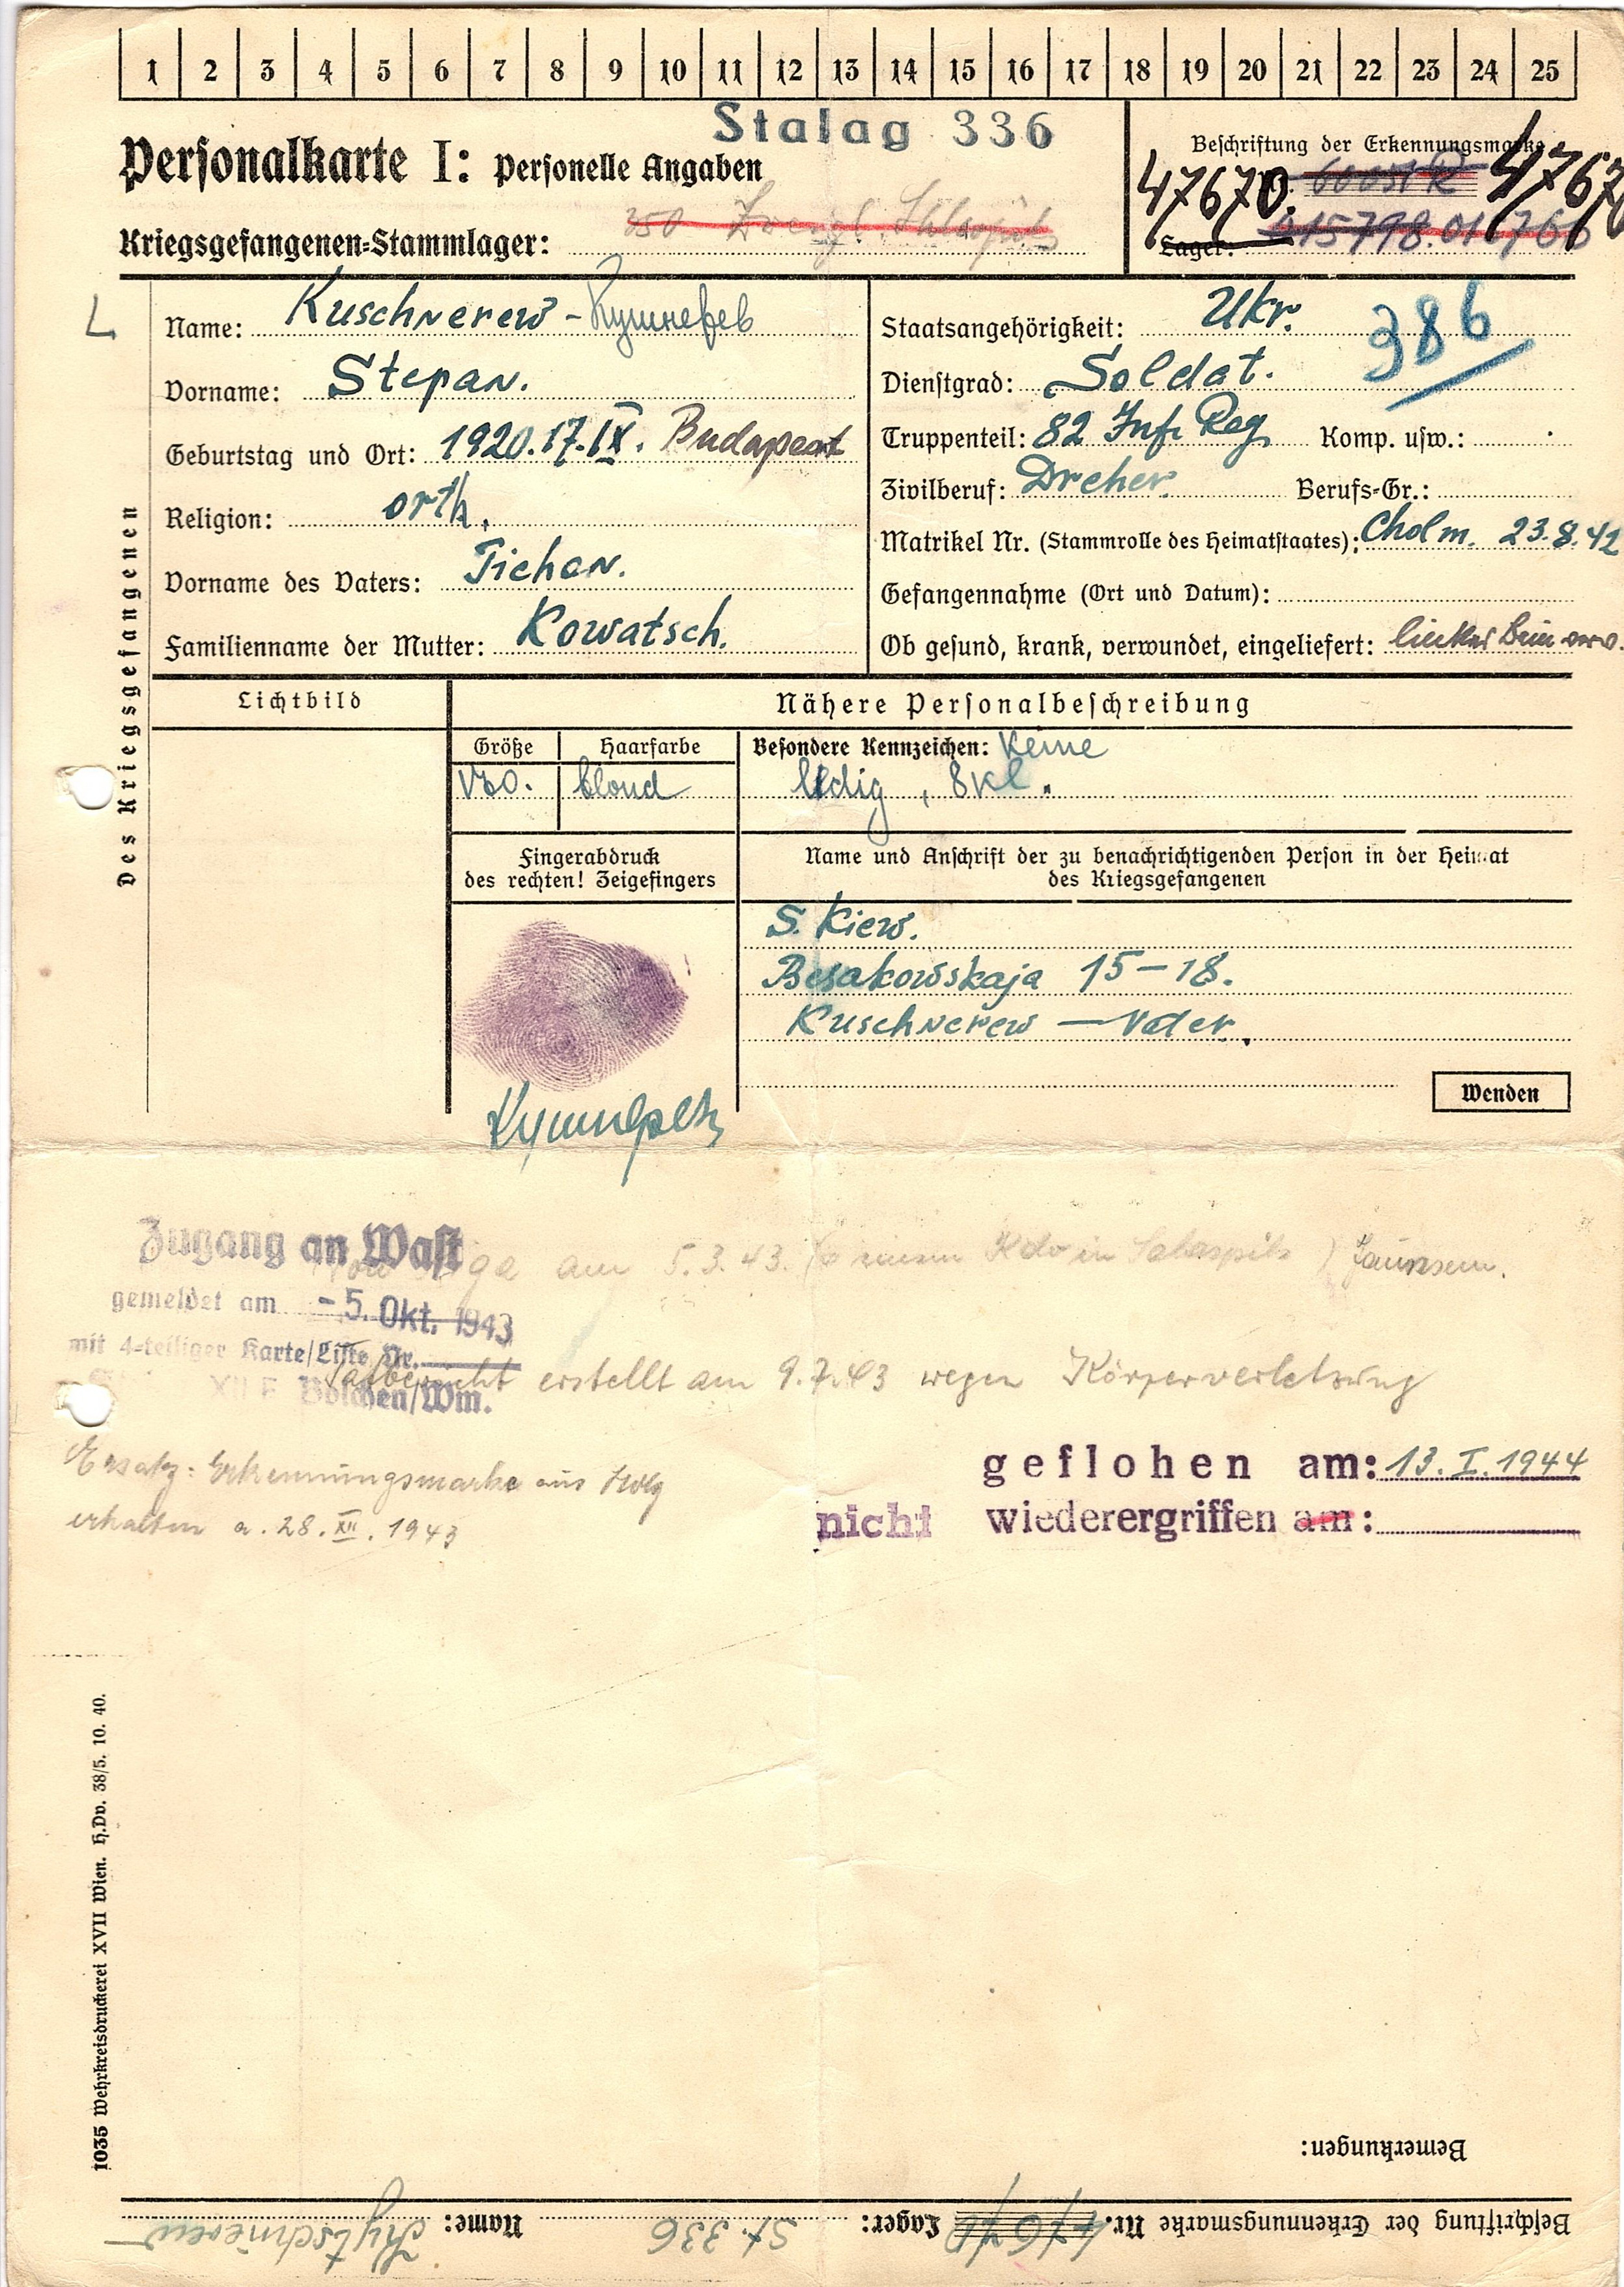 1 2 3 4 5 6 7 8 9 10 11 12 13 14 15 16 17 18 19 20 21 22 23 24 25
Stalag 336
Personalkarte I: Personelle Angaben
Beschriftung der Erkennungsmarke
47670. 4767
Kriegsgefangenen-Stammlager: 350
Lager:
Des Kriegsgefangenen
L
Name: Kuschnerew -
Vorname: Stepan.
Geburtstag und Ort: 1920.17.IX. Budapest
Religion: orth.
Vorname des Vaters: Tichon.
Familienname der Mutter: Kowatsch.
Staatsangehörigkeit: Ukr.
386
Dienstgrad: Soldat.
Truppenteil: 82 Inf. Reg. Komp. usw.:
Zivilberuf: Dreher. Berufs-Gr.:
Matrikel Nr. (Stammrolle des Heimatstaates): Cholm. 23.8.42
Gefangennahme (Ort und Datum):
Ob gesund, krank, verwundet, eingeliefert: linkes Bein verw.
Lichtbild
Nähere Personalbeschreibung
Größe
Haarfarbe
blond
Besondere Kennzeichen: keine
ledig, 8 kl.
Fingerabdruck
des rechten! Zeigefingers
Name und Anschrift der zu benachrichtigenden Person in der Heimat
des Kriegsgefangenen
S. Kiew.
Besakowskaja 15-18.
Kuschnerew — Vater.
Wenden
Zugang an Wast
gemeldet am - 5. Okt. 1943
mit 4-teiliger Karte/Liste Nr.
XII F Bolchen/Wm.
am 5.3.43. Kdo in Salaspils
Tatbericht erstellt am 9.7.43 wegen Körperverletzung
Ersatz: Erkennungsmarke aus Holz
erhalten a. 28. XII. 1943
geflohen am: 13. I. 1944
nicht wiederergriffen am:
1035 Wehrkreisdruckerei XVII Wien. H.Dv. 38/5. 10. 40.
Bemerkungen:
Beschriftung der Erkennungsmarke Nr. 47670 Lager: St. 336 Name: